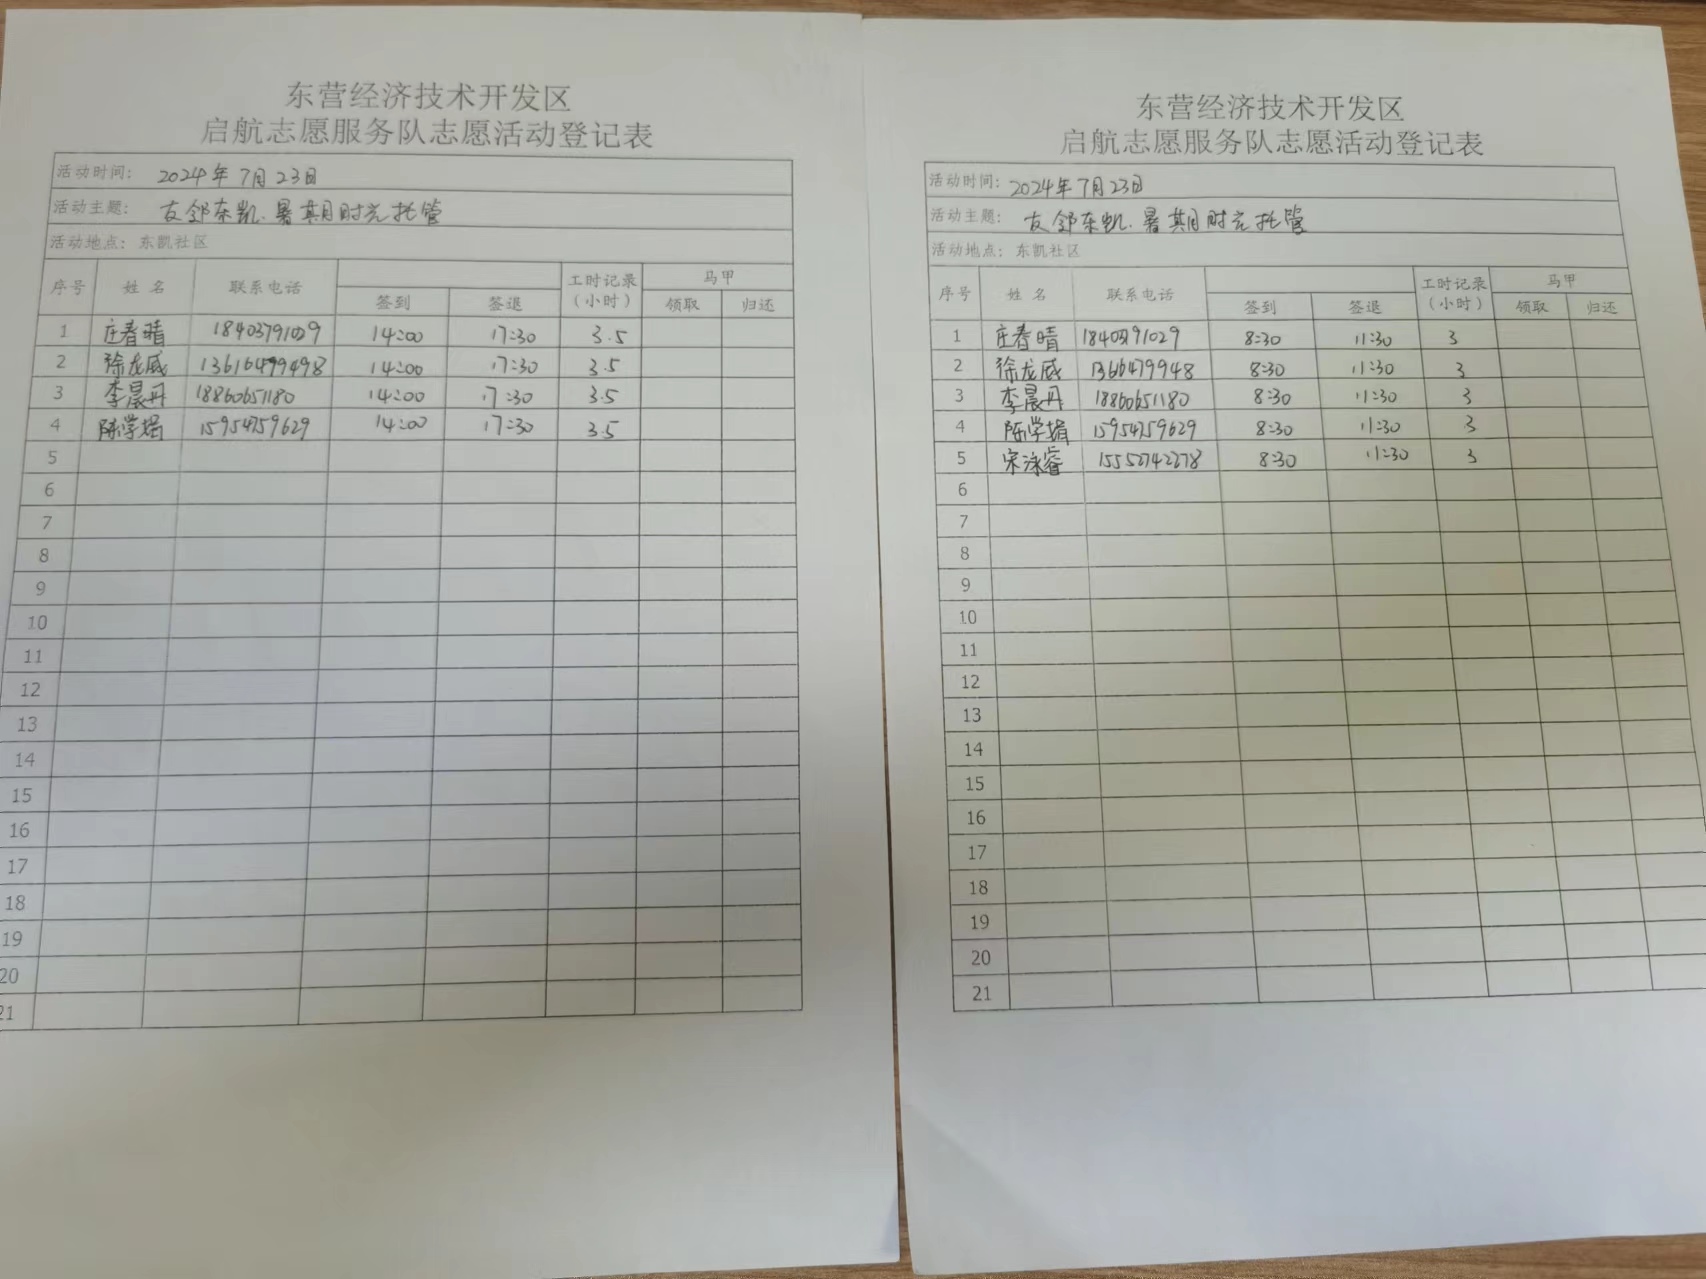 东营经济技术开发区
启航志愿服务队志愿活动登记表
活动时间: 2024年7月23日
活动主题: 友邻东凯.暑期时光托管
活动地点: 东凯社区
序号 姓名 联系电话 签到 签退 工时记录(小时) 马甲 领取 归还
1 庄春晴 18403791029 14:00 17:30 3.5
2 徐龙威 14:00 17:30 3.5
3 李晨丹 18860651180 14:00 17:30 3.5
4 陈学娟 15954759629 14:00 17:30 3.5
5
6
7
8
9
10
11
12
13
14
15
16
17
18
19
20
21
东营经济技术开发区
启航志愿服务队志愿活动登记表
活动时间: 2024年7月23日
活动主题: 友邻东凯.暑期时光托管
活动地点: 东凯社区
序号 姓名 联系电话 签到 签退 工时记录(小时) 马甲 领取 归还
1 庄春晴 8:30 11:30 3
2 徐龙威 8:30 11:30 3
3 李晨丹 18860651180 8:30 11:30 3
4 陈学娟 15954759629 8:30 11:30 3
5 宋泳睿 15552742278 8:30 11:30 3
6
7
8
9
10
11
12
13
14
15
16
17
18
19
20
21